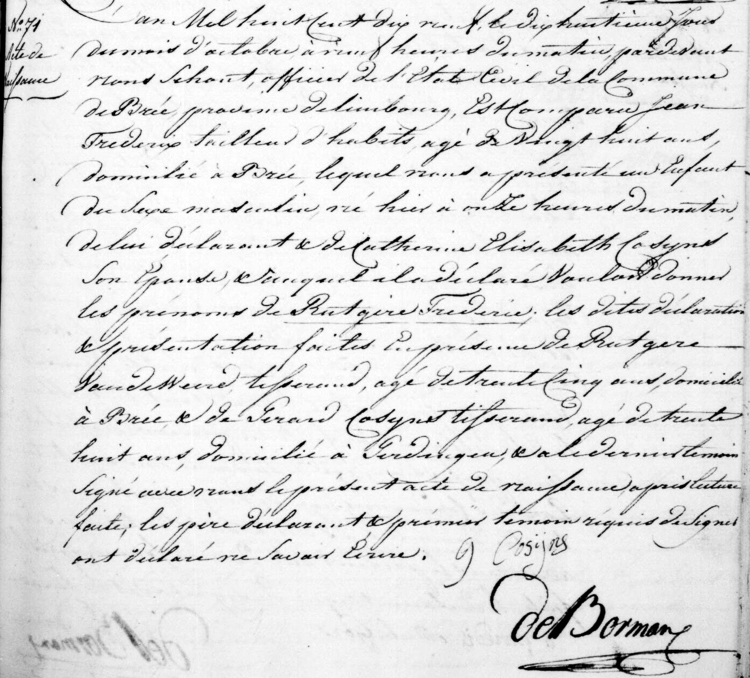 N.o 71
Acte de
Naissance
L'an Mil huit Cent dix neuf, le dix huitieme Jour
du mois d'octobre à neuf heures du matin, pardevant
nous Schout, officier de l'Etat Civil de la Commune
de Brée, province de limbourg, Est Comparu Jean
Frederix tailleur d'habits, agé de Vingt huit ans,
domicilié à Brée, lequel nous a présenté un Enfant
du Sexe masculin, né hier à onze heures du matin,
de lui déclarant & de Catherine Elisabeth Cosyns
Son Épouse, & auquel il a déclaré Vouloir donner
les prénoms de Rutgère Frederic; les dites déclaration
& présentation faites En présence de Rutgere
Vande Weerd, tisserand, agé de trente Cinq ans, domicilié
à Brée, & de Gerard Cosyns tisserand, agé de trente
huit ans, domicilié à Gerdingen, & a le dernier temoin
Signé avec nous le présent acte de naissance, après lecture
faite; les père déclarant & premier temoin réquis de Signer
ont déclaré ne Savoir Écrire.
g Cosyns
de Borman